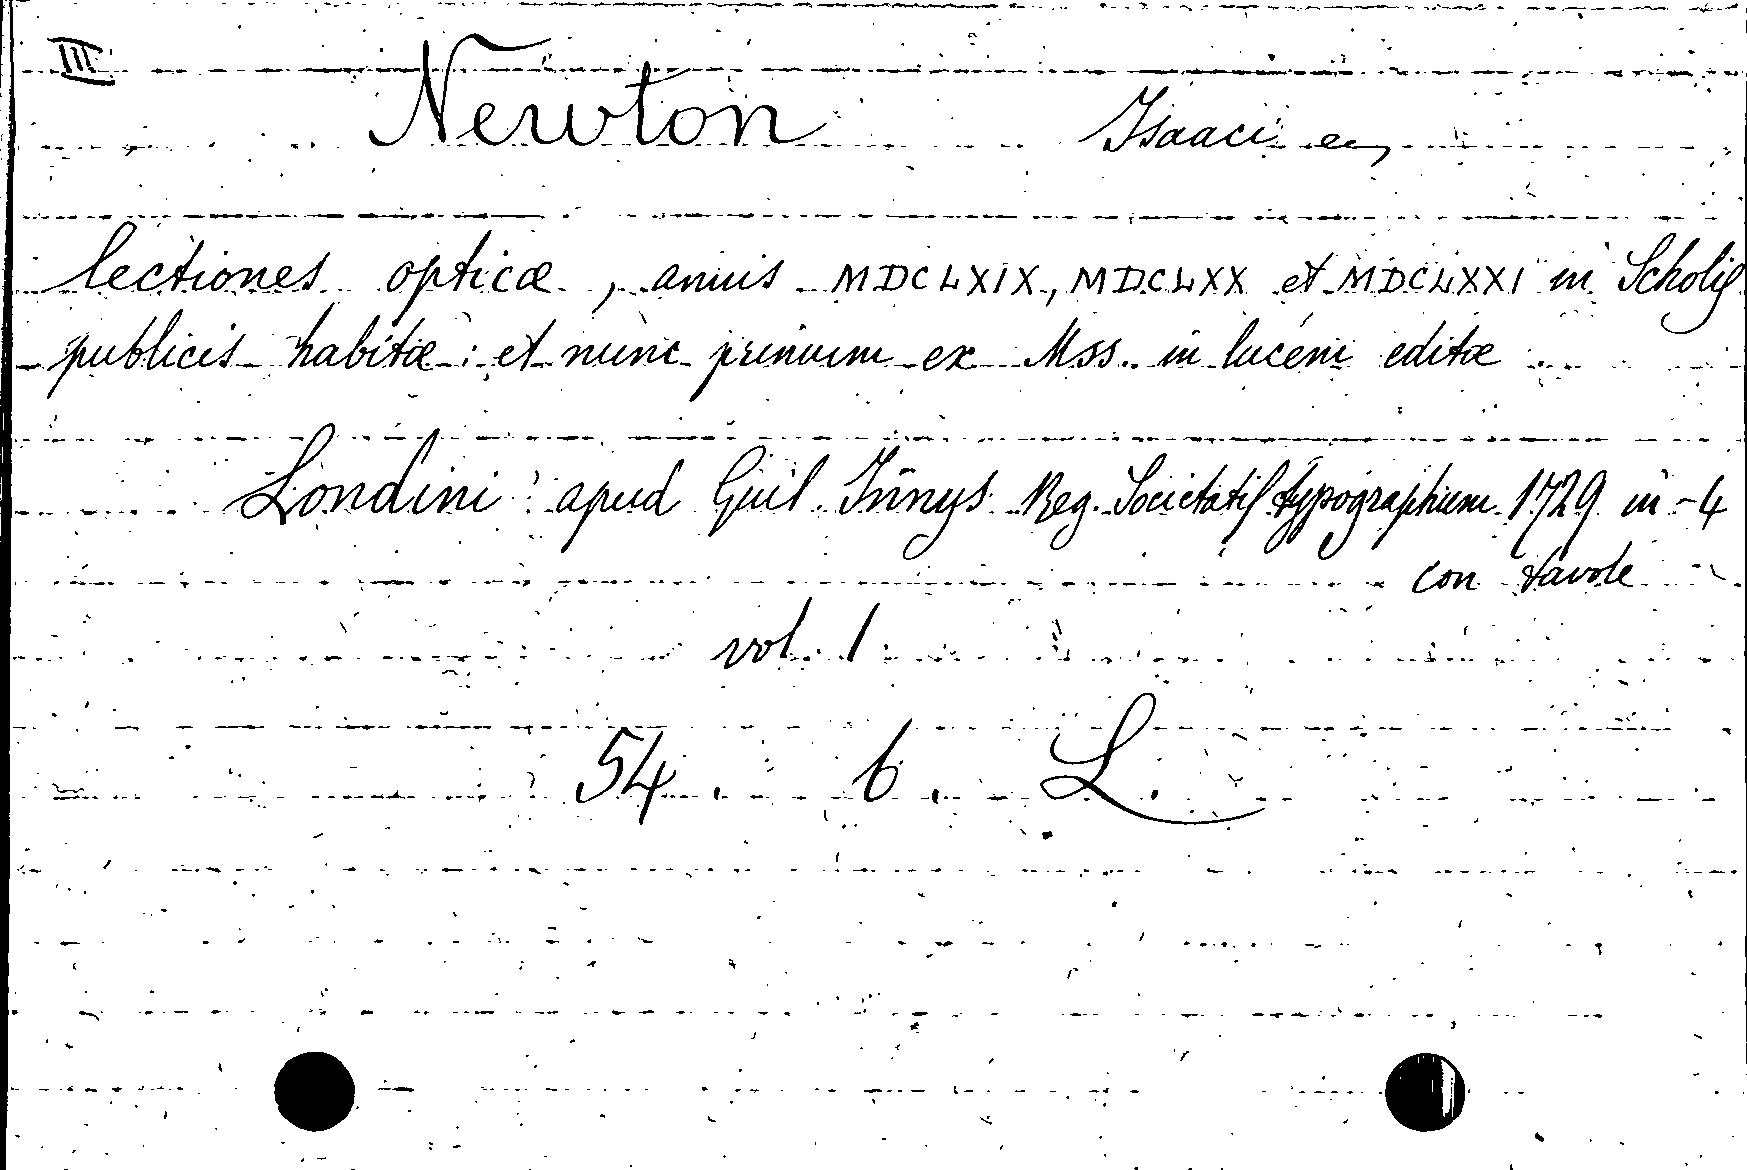 III
Newton Isaaci eq
lectiones opticæ, annis MDCLXIX, MDCLXX et MDCLXXI in Scholis
publicis habitæ: et nunc primum ex Mss. in lucem editæ.
Londini: apud Guil. Innys Reg. Societatis typographum 1729 in-4
con tavole
vol. 1
54. 6. L.